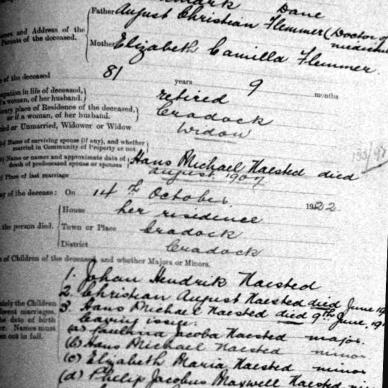 Dane
Father August Christian Flemmer (Doctor of
mes and Address of the
Parents of the deceased.
Mother Elizabeth Camilla Flemmer
of the deceased 81 years 9 months
upation in life of deceased,
a woman, of her husband.) retired
ary place of Residence of the deceased,
or if a woman, of her husband.) Cradock
ried or Unmarried, Widower or Widow Widow
Name of surviving spouse (if any), and whether
married in Community of Property or not
Name or names and approximate date of
of predeceased spouse or spouses Hans Michael Haested died
August 1907
Place of last marriage
y of the decease: On 14th October, 1922
House her residence
the person died. Town or Place Cradock
District Cradock
s of Children of the deceased, and whether Majors or Minors.
1. Johan Hendrik Haested
2. Christian August Haested died June 19
3. Hans Michael Haested died 9th June, 19
leaving issue:
ately the Children
ferent marriages.
he date of birth
er. Names must
en out in full.
(a) Jacoba Haested major.
(b) Hans Michael Haested minor
(c) Elizabeth Maria Haested minor
(d) Philip Jacobus Maxwell Haested